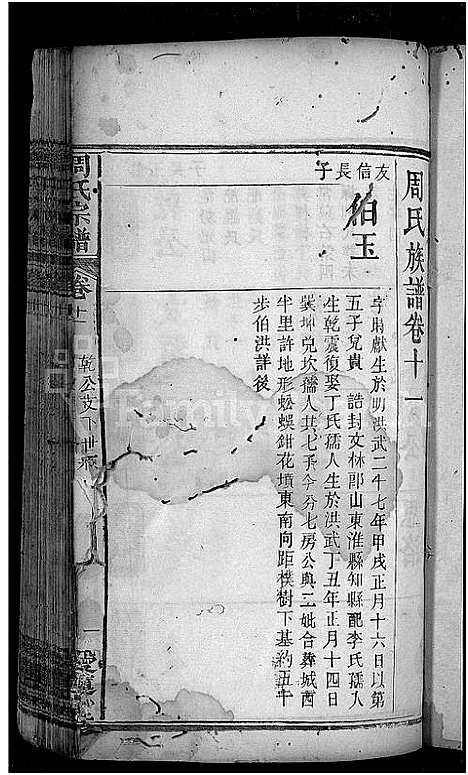 周氏族譜卷十一
友信長子
伯玉
字時獻生於明洪武二十七年甲戌正月十六日以第
五子兒貴 誥封文林郎山東淮縣知縣配李氏孺人
生乾震復娶丁氏孺人生於洪武丁丑年正月十四日
巽坤兌坎孺人共七子今分七房公與二妣合葬城西
半里許地形蜈蚣鉗花墳東南向距樸樹下基約五十
步伯洪詳後
周氏宗譜
卷十一
乾公支下世
一